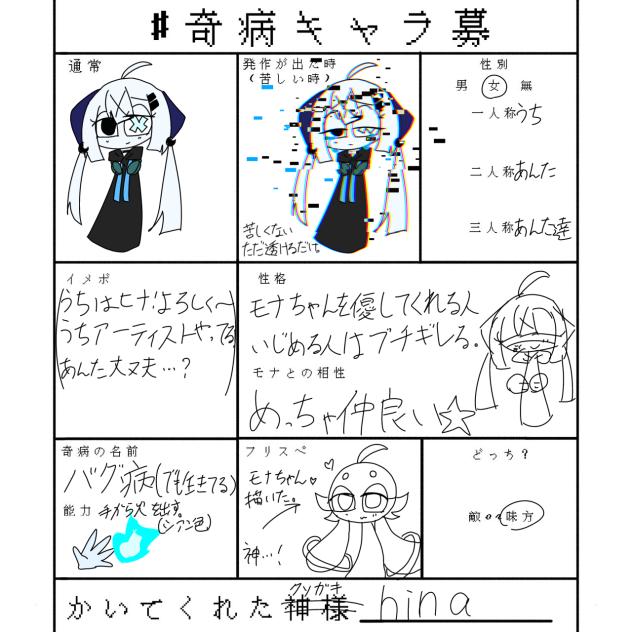 #奇病キャラ募
通常
発作が出た時
(苦しい時)
苦しくない
ただ透けるだけ。
性別
男 女 無
一人称うち
二人称あんた
三人称あんた達
イメボ
うちはヒナ!よろしく〜
うちアーティストやってる
あんた大丈夫…?
性格
モナちゃんを優してくれる人
いじめる人はブチギレる。
モナとの相性
めっちゃ仲良い☆
奇病の名前
バグ病(でも生きてる)
能力 手から火を出す。
(シアン色)
フリスペ
モナちゃん♡
描いた。
神…!
どっち?
敵 味方
クソガキ
かいてくれた神様 hina